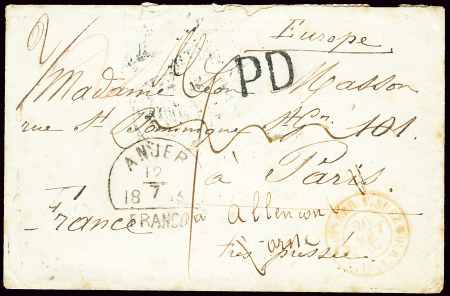 Europe
PD
Madame Léon Masson
rue St Dominique St Gn 101.
à Paris
ANJER
12
7
18 6
FRANCO
France
à Allençon
orne
très pressée